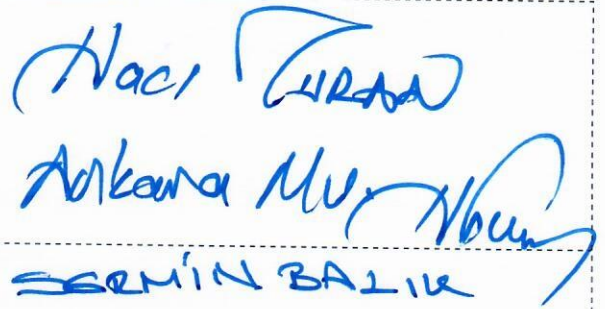 Hacı TURAN
Ankara Mv.
SERMİN BALIK